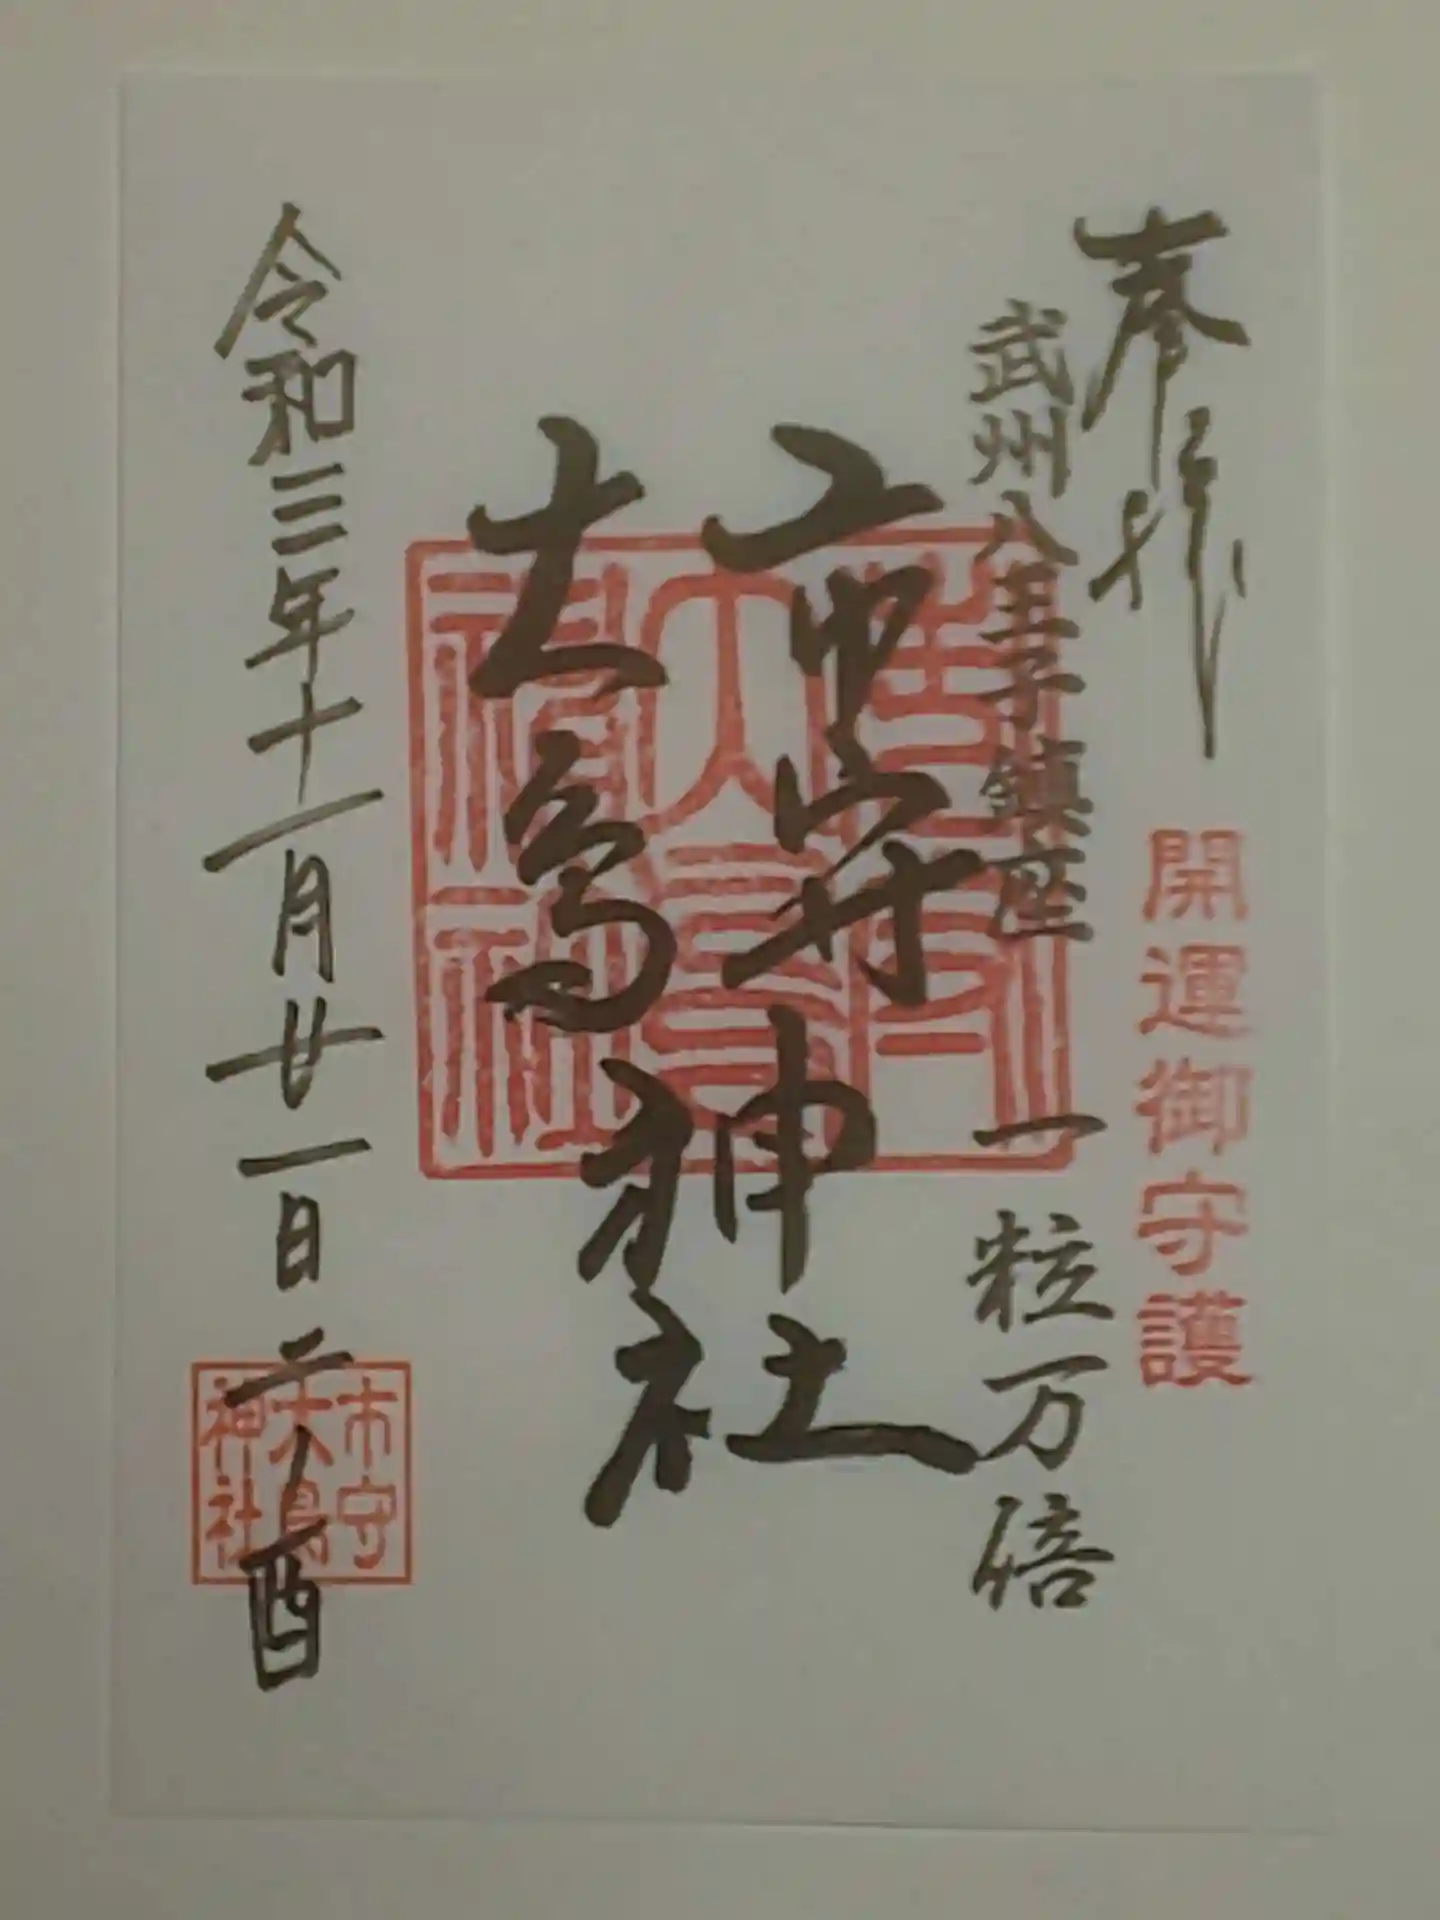 奉拝
開運御守護
武州八王子鎮座
一粒万倍
市守神社
大鳥神社
令和三年十一月廿一日二ノ酉
市守
大鳥
神社